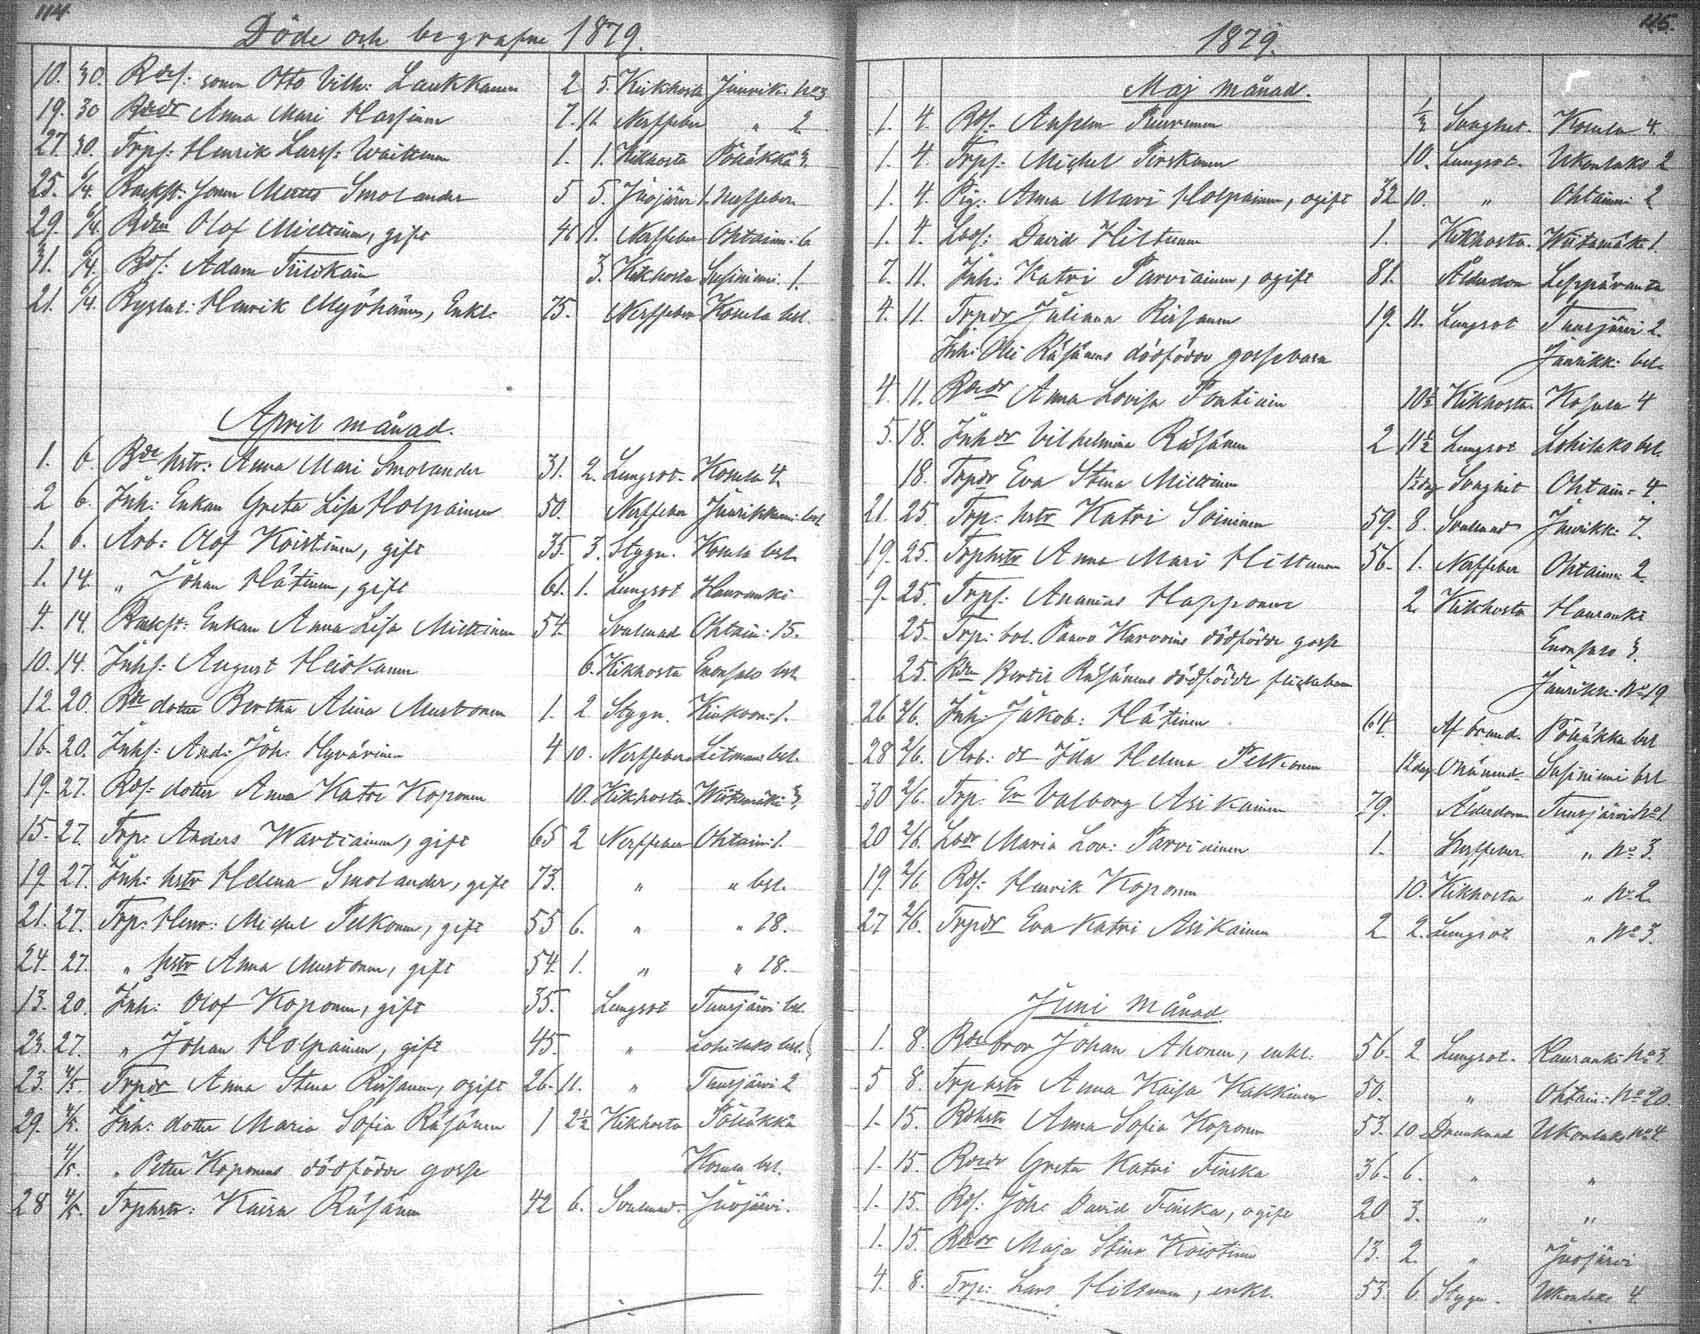 114.
Döde och begrafne 1879.
10. 30. Rdes: sonen Otto Vilh: Laukkanen 2 5. Kikhosta Juurik: No3
19. 30 Rdedr Anna Mari Hassinen 7. 11. Nerffeber " 2
27. 30. Trps: Henrik Larss: Waikinen 1. 1. Kikhosta Pölläkkä 3.
25. 6/4. Backst: sonen Smolander 5 5. Juojärvi 1. Nerffeber
29. 6/4. Rden Olof Miettinen, gift 46 1. Nerffeber Ohtaim: 6
31. 6/4. Rds: Adam Tiilikain 3. Kikhosta Susiniemi 1.
21. 6/4. Rysl: Henrik Myöhänen, Enkl. 75. Nerffeber Kosula bst.
April månad.
1. 6. Rde hstr: Anna Mari Smolander 31. 2. Lungsot. Kosula 4.
2 6. Inh: Enkan Greta Lisa Holpainen 50. Nerffeber Juurikkam: bst
1. 6. Arb: Olof Koistinen, gift 35. 3. Stygn. Kosula bst.
1. 14. " Johan Hätinen, gift 61. 1. Lungsot Hauranki
4. 14. Backst: Enkan Anna Lisa Miettinen 54. Svulnad Ohtain: 15.
10. 14. Inhs: August Heiskanen 6. Kikhosta Enonsalo bst.
12. 20. Rde dotter Bertha Alina Mustonen 1. 2. Stygn. 1.
16. 20. Inhs: And: Joh: Hyvärinen 4 10. Nerffeber bst.
19. 27. Rds: dotter Anna Katri Koponen 10. Kikhosta Wiitamäki 3.
15. 27. Trp: Anders Wartiainen, gift 65 2 Nerffeber Ohtaim: 1.
19. 27. Inh: hstr Helena Smolander, gift 73. " " bst.
21. 27. Trp: Henr: Michel Pelkonen, gift 55 6. " " 18.
24. 27. " hstr Anna Mustonen, gift 54. 1. " " 18.
13. 20. Inh: Olof Koponen, gift 35. Lungsot Tuusjärvi bst.
23. 27. " Johan Holpainen, gift 45. " Lohilaks bst.
23. 4/5 Trpdr Anna Stina Räsänen, ogift 26. 11. " Tuusjärvi 2
29. 4/5. Inh: dotter Maria Sofia Räsänen 1 2½ Kikhosta Pölläkkä
4/5. " Petter Koponens dödfödde gosse Kosula bst.
28 4/5. Trphstr: Kaisa Räsänen 42 6. Svulnad. Juojärvi.
115.
1879.
Maj månad.
1. 4. Rds: Anselm Turunen ½ Svaghet. Kosula 4.
1. 4. Trps: Michel Turskanen 10. Lungsot Ukonlaks 2
1. 4. Pig: Anna Mari Holpainen, ogift 32 10. " Ohtaim: 2
1. 4. Lods: David Hiltunen 1. Kikhosta. Wiitamäk: 1.
7. 11. Inh: Katri Parviainen, ogift 81. Ålderdom Leppäranta
4. 11. Trpdr Juliana Räsänen 19. 11. Lungsot Tuusjärvi 2.
Inh: Olli Räsänens dödfödde gossebarn Juurikk: bst.
4. 11. Rdedr Anna Lovisa Pontinen 10½ Kikhosta. Kosula 4
5. 18. Inhdr Vilhelmina Räsänen 2 11½ Lungsot Lohilaks bst
18. Trpdr Eva Stina Miettinen 1½ dag Svaghet Ohtain: 4.
21. 25. Trp: hstr Katri Soininen 59. 8. Svulnad Juurikk: 7.
19. 25. Trphstr Anna Mari Hiltunen 56. 1. Nerffeber Ohtaim: 2.
9. 25. Trps: Ananias Happonen 2. Kikhosta Hauranki
25. Trp: bol. Paavo Karvoins dödfödde gosse Enonsalo 3.
25. Rden Bertil Räsänens dödfödde flickebarn Juurikk: No 19
26 2/6. Inh: Jakob: Hätinen 64. Af brand. Pölläkkä bst
28 2/6. Arb: dr Ida Helena Pelkonen 12 dag Okännd. Susiniemi bst
30 2/6. Trp: Valborg Asikainen 79. Ålderdom Tuusjärvi No 1
20 2/6. Lodr Maria Lov: Parviainen 1. Nerffeber. " No 3.
19. 2/6. Rds: Henrik Koponen 10. Kikhosta " No 2.
27 2/6. Trpdr Eva Katri Asikainen 2 2. Lungsot " No 3.
Juni månad.
1. 8. Rdebror Johan Ahonen, enkl. 56. 2 Lungsot. Hauranki No 3.
5 8. Trphstr Anna Kaisa Kakkinen 50. " Ohtain: No 20.
1. 15. Rdhstr Anna Sofia Koponen 53. 10. Drunknad Ukonlaks No 4.
1. 15. Rdedr Greta Katri Finska 36. 6. " "
1. 15. Rds: Joh: David Finska, ogift 20 3. " "
1. 15. Rdedr Maja Stina Koistinen 13. 2. " Juojärvi
4. 8. Trp: Lars Hiltunen, enkl. 53. 6. Stygn. Ukonlaks 4.